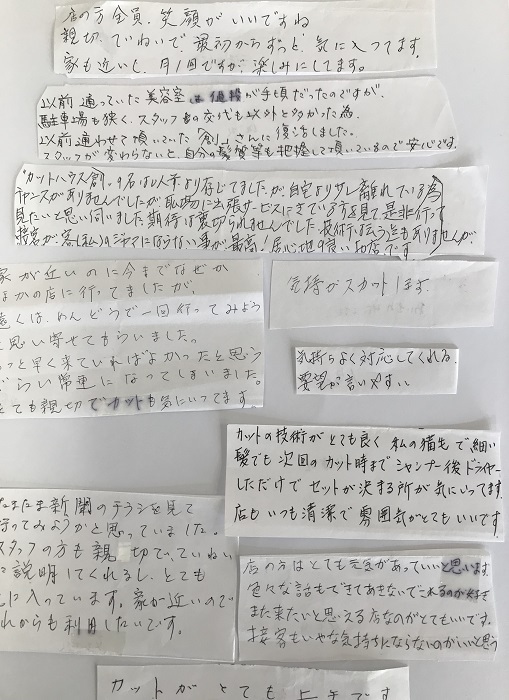 店の方全員、笑顔がいいですね
親切、ていねいで最初からずっと気に入ってます。
家も近いし、月1回ですが、楽しみにしてます。
以前通っていた美容室は価格が手頃だったのですが、
駐車場も狭く、スタッフの交代も以外と多かった為、
以前通わせて頂いていた「創」さんに復活しました。
スタッフが変わらないと、自分の髪質等も把握して頂いているので安心です。
"カットハウス創"の名は以前より存じてましたが、自宅より少し離れている為
チャンスがありませんでしたが、職場に出張サービスにきている方を見て是非行って
見たいと思い伺いました。期待は裏切られませんでした。技術は云う迄もありませんが、
接客が、客(私)のジャマにならない事が最高!居心地の良いお店です
家が近いのに今までなぜか
ほかの店に行ってましたが、
遠くは、めんどうで一回行ってみよう
と思い寄せてもらいました。
っと早く来ていればよかったと思う
ぐらい常連になってしまいました。
とても親切でカットも気にいってます。
気持がスカットします。
気持ちよく対応してくれる。
要望が言いやすい
カットの技術がとても良く 私の猫毛で細い
髪でも次回のカット時までシャンプー後ドライヤー
しただけでセットが決まる所が気にいってます。
店もいつも清潔で雰囲気がとてもいいです。
たまたま新聞のチラシを見て
行ってみようかと思っていました。
スタッフの方も親切で、ていねい
に説明してくれるし、とても
に入っています。家が近いので
れからも利用したいです。
店の方はとても元気があっていいと思います。
色々な話もできてあきないでこれるのが好き
また来たいと思える店なのがとてもいいです。
接客もいやな気持ちにならないのがいいと思う
カットがとても上手です